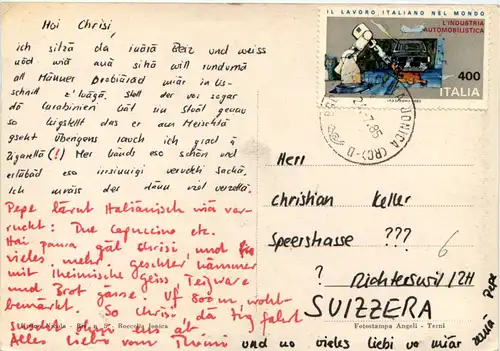 Hoi Chrisi,
ich sitzä da inärä Beiz und weiss
nöd wiä auä sitzä will rundumä
all Männer probiäräd miär in Us-
schnitt z'luägä. Stell der voi sogar
dä Carabinieri hät sin Stuäl genau
so higstellt das er am Meischtä
gseht. Übrigens rauch ich grad ä
Zigarettä (!) Mer händs eso schön und
erläbäd eso irrsinnigi verruckti Sachä.
Ich muäss der dänn viel verzellä.
Pepe lärnt Italiänisch wiä ver-
ruckt: Due Capuccino etc.
Hai paura gäl Chrisi und
vieles mehr, geschter hämmer
mit Iheimische Geiss, Teigware
und Brot gässe. Uf 800m, wohl-
bemärkt. So Chrisi, dä Zug fahrt
susch ohni ab.
Alles Liebi vom und no vieles liebi vo miär
Pepe
IL LAVORO ITALIANO NEL MONDO
L'INDUSTRIA
AUTOMOBILISTICA
400
ITALIA
JONICA (RC)-D
24.7.85
Herr
Christian Keller
Speerstrasse ???
? Richterswil / ZH
SUIZZERA
6
Roccella Jonica
Fotostampa Angeli - Terni